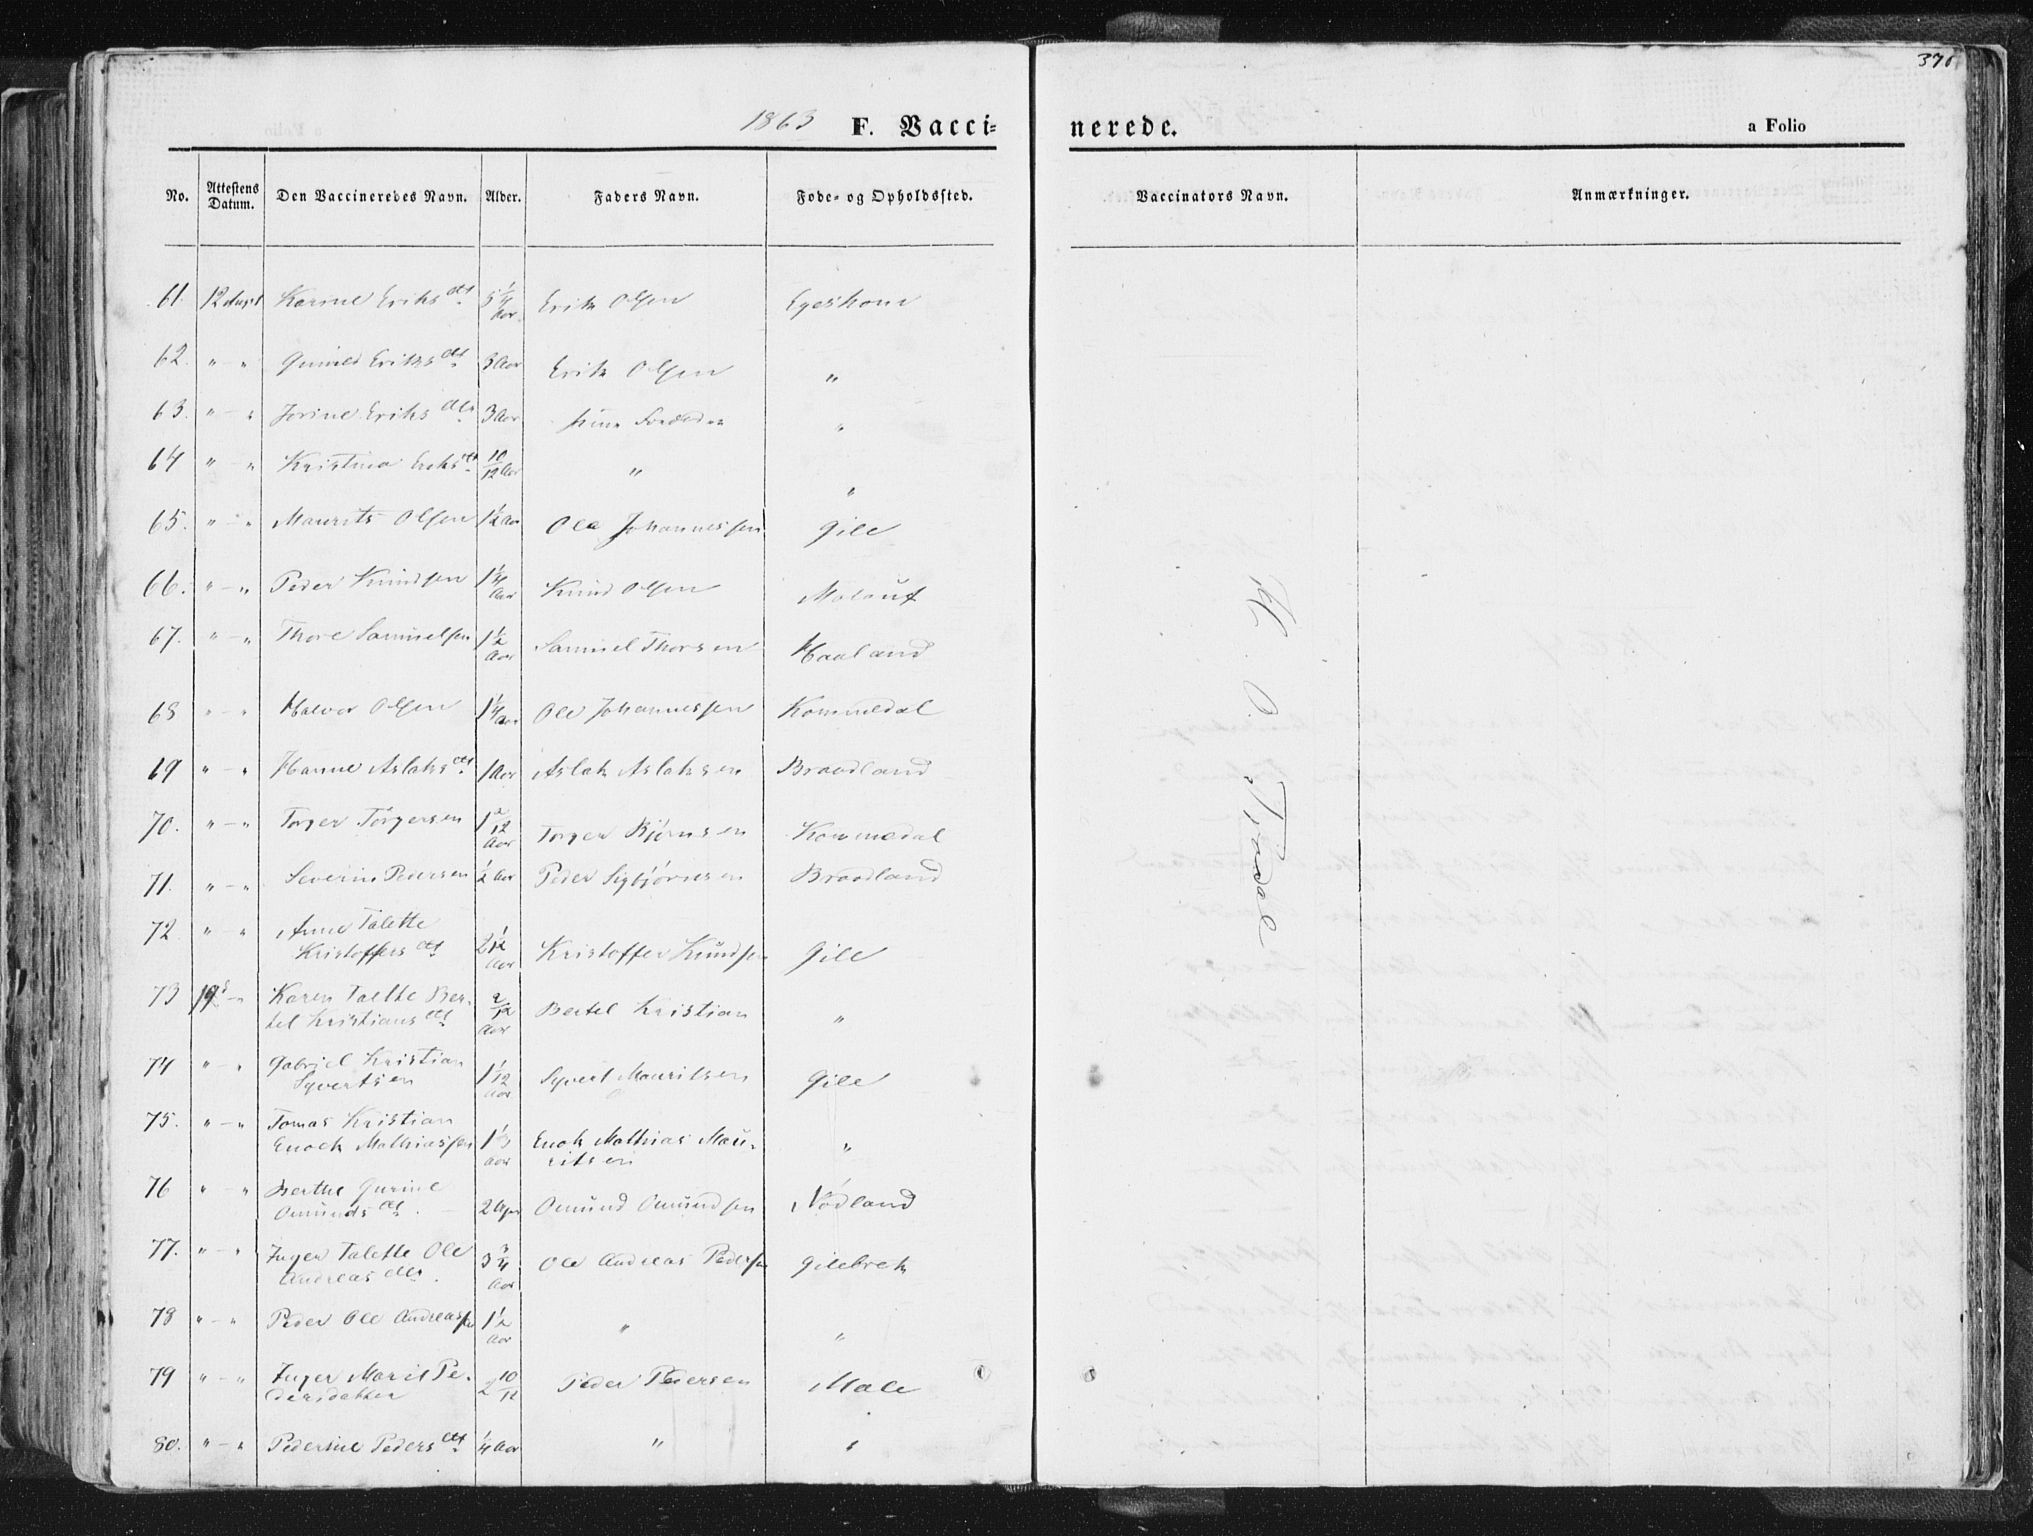 376
1863 F. Vacci=nerede. a Folio
No. Attestens Datum. Den Vaccineredes Navn. Alder. Faders Navn. Føde= og Opholdssted. Vaccinators Navn. Anmærkninger.
61. 12 Augst Karine Eriksdtr 5 1/4 Aar Erik Olsen
62. " — " Eriksdtr 3 Aar Erik Olsen "
63. " — " Jorine Eriksdtr 3 Aar "
64 " — " Kristina Eriksdtr 10/12 Aar " "
65. " — " Maurits Olsen 1 1/2 Aar Ole Johannessen Gile
66. " — " Peder Knudsen 1 1/4 Aar Knud Olsen
67. " — " Thore Samuelsen 1 1/2 Aar Samuel Thorsen Haaland
68 " — " Halvor Olsen 1 1/4 Aar Ole Johannessen Kommedal
69 " — " Hanne Aslaksdtr 1 Aar Aslak Aslaksen Braadland
70. " — " Torger Torgersen 1 2/12 Aar Torger Bjørnsen Kommedal
71. " — " Severin Pedersen 1/2 Aar Peder Sigbjørnsen Braadland
72 " — " Anne Talette
Kristoffersdtr 2 1/12 Aar Kristoffer Knudsen Gile
73 19 — " Karen Talette Ber-
tel Kristiansdtr 2/12 Aar Bertel Kristian "
74 " — " Gabriel Kristian
Syvertsen 1 1/12 Aar Syvert Mauritsen Gile
75. " — " Tomas Kristian
Enock Mathiassen 1 1/3 Aar Enok Mathias Mau-
ritsen "
76 " — " Berthe Gurine
Omundsdtr. 2 Aar Omund Omundsen Nødland
77. " — " Inger Talette Ole
Andreasdtr. 3 3/4 Aar Ole Andreas Pedersen Gilebrek
78 " — " Peder Ole Andreassen 1 1/2 Aar " "
79 " — " Inger Marit Pe-
dersdatter 2 10/12 Peder Pedersen Mæle
80. " — " Pederine Pedersdtr 1/4 Aar " "
O. Tjosdal